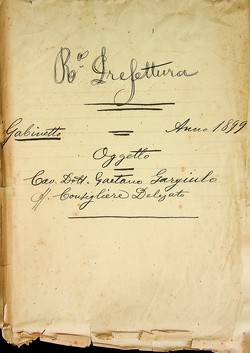 R.ª Prefettura
Gabinetto Anno 1899
Oggetto
Cav. Dott. Gaetano Gargiulo
ff. Consigliere Delegato